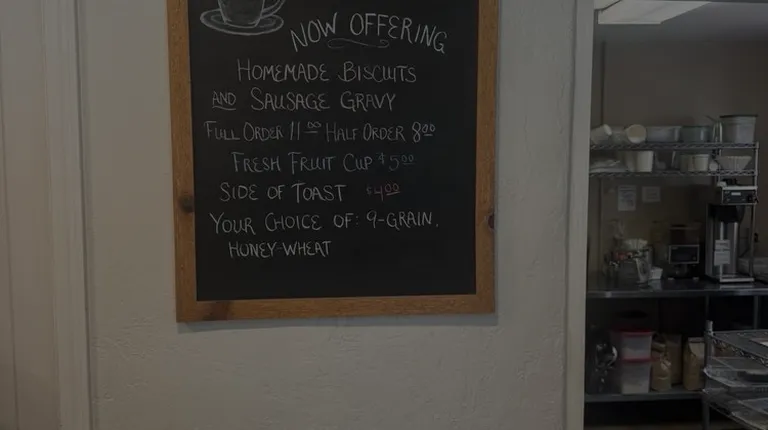 NOW OFFERING
HOMEMADE BISCUITS
AND SAUSAGE GRAVY
FULL ORDER 11 00 HALF ORDER 8 00
FRESH FRUIT CUP $5 00
SIDE OF TOAST $4 00
YOUR CHOICE OF: 9-GRAIN,
HONEY-WHEAT